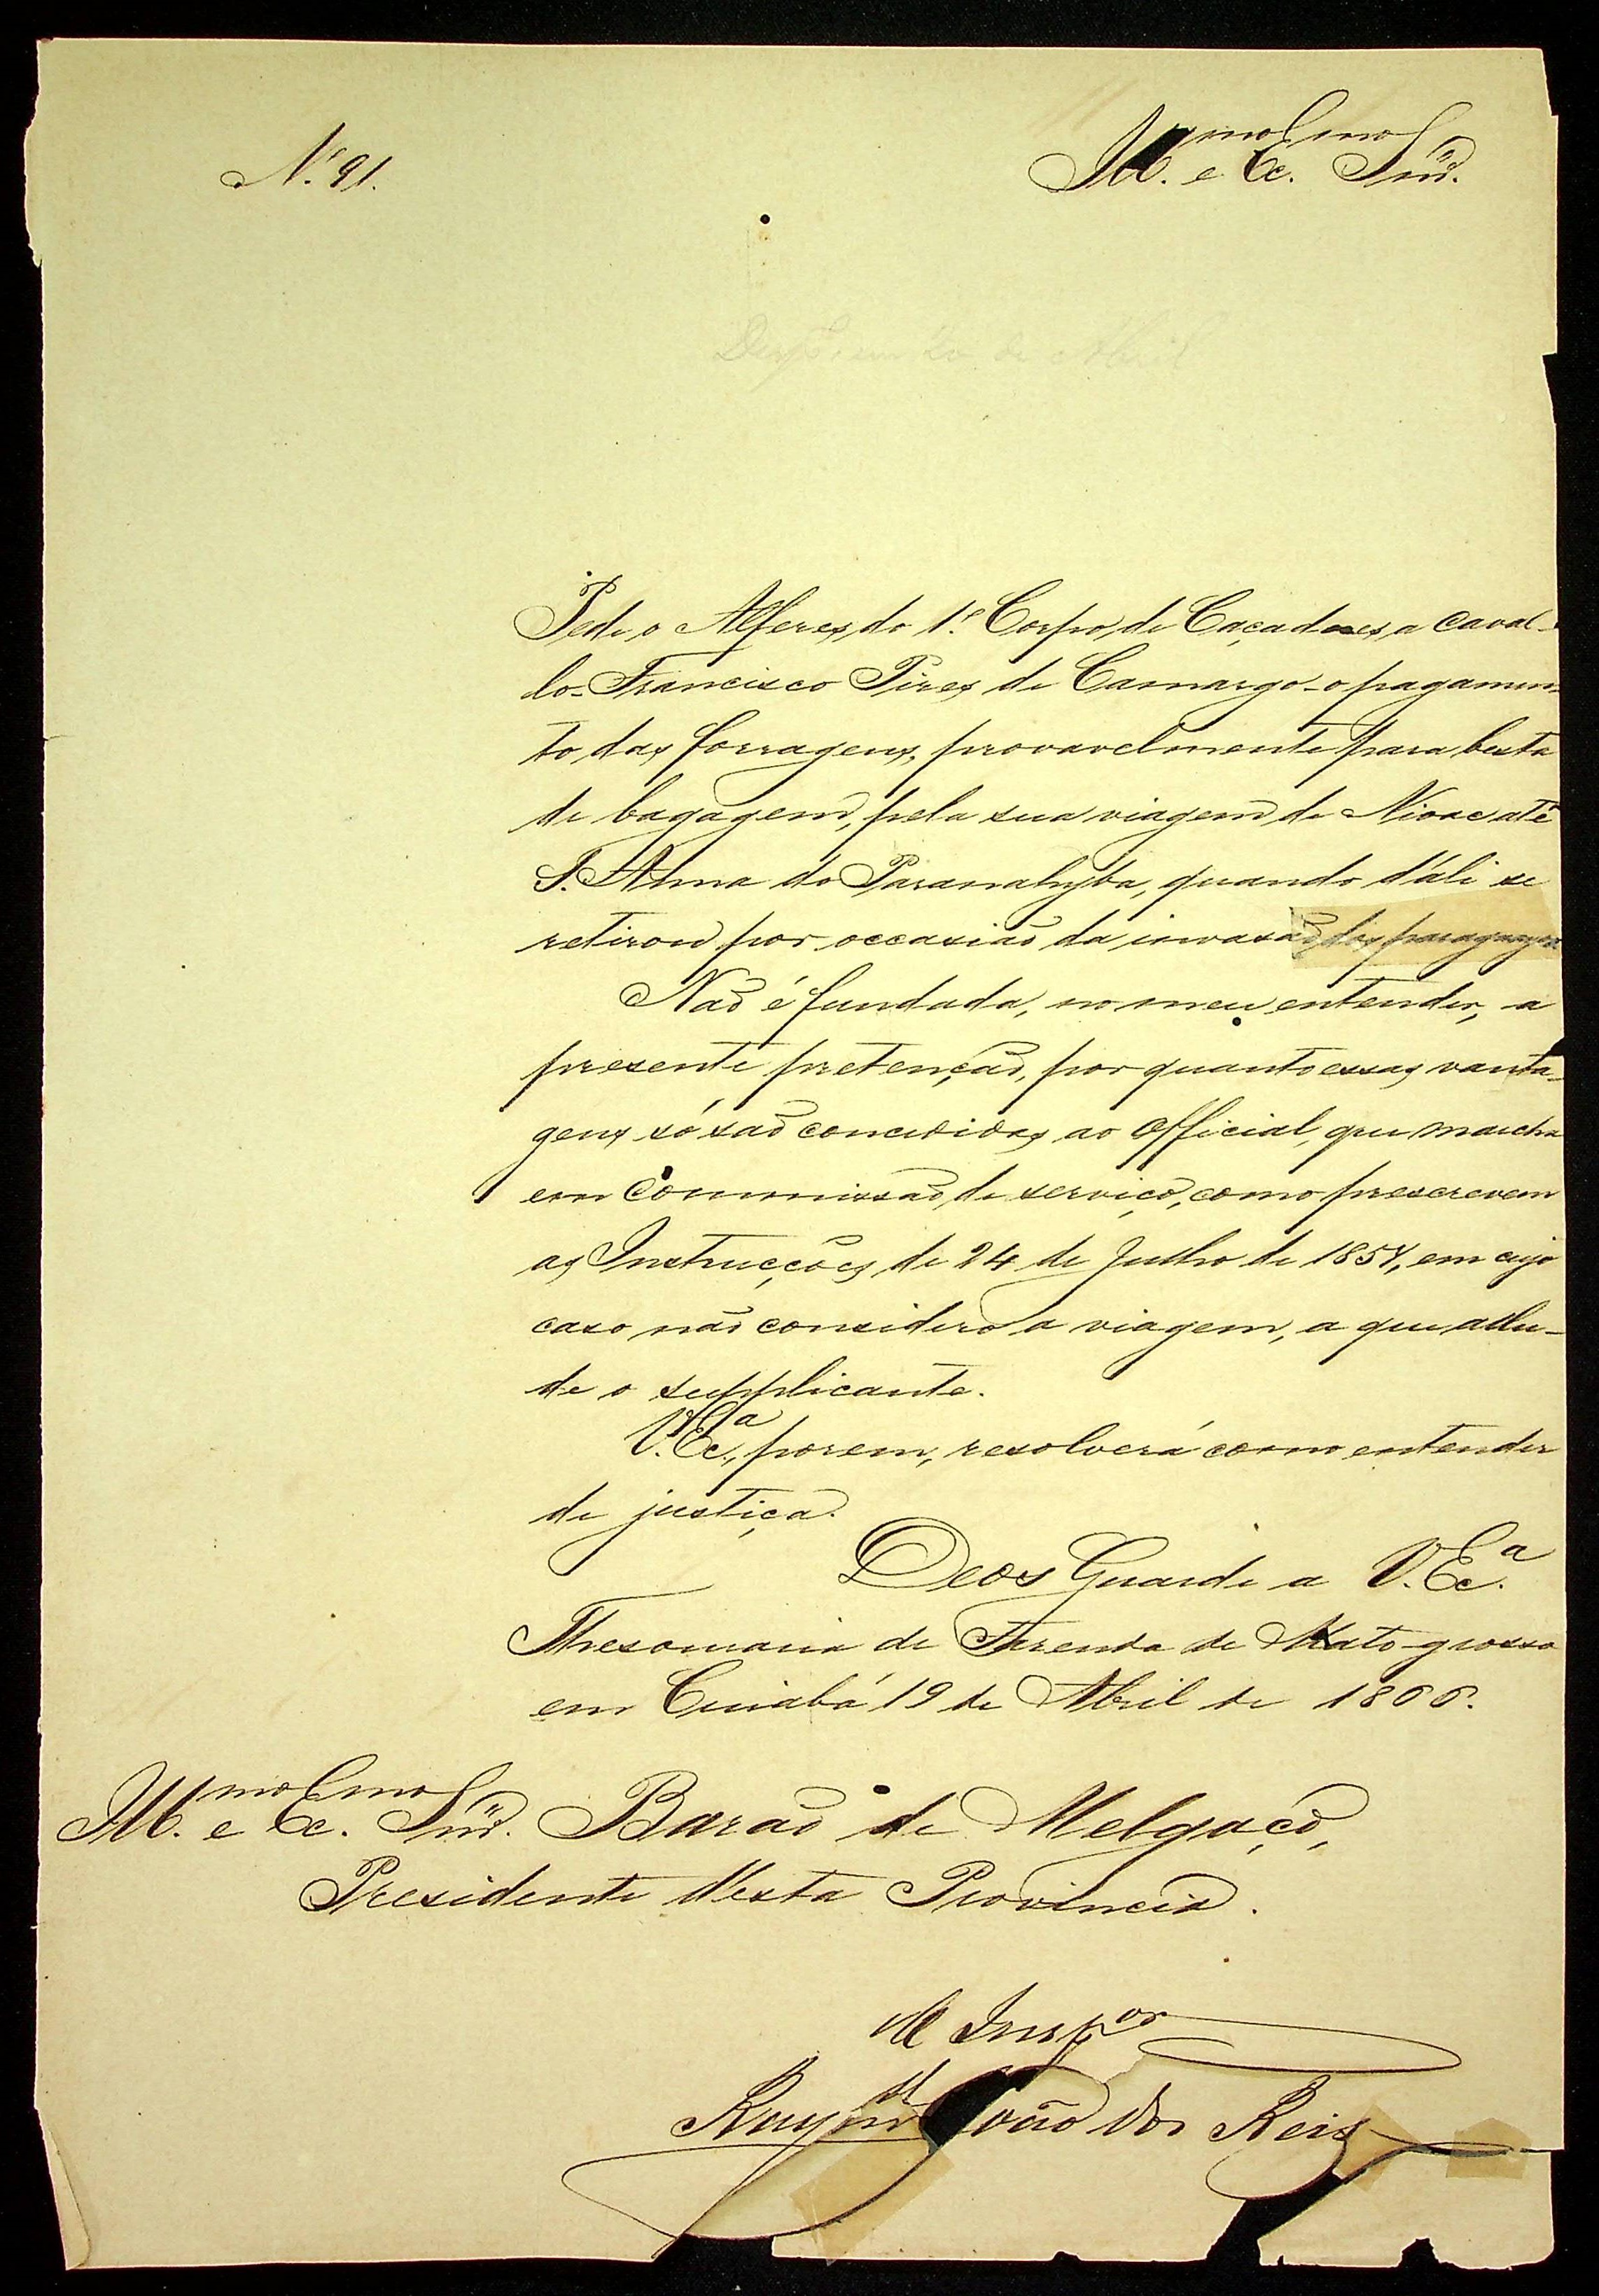 N.º 91.
Ill.mo e Ex.mo Snr.
Abril
Pede o Alferes do 1.º Corpo de Caçadores a Caval-
lo - Francisco Pires de Camargo - o pagamen-
to das forragens, provavelmente para besta
de bagagem, pela sua viagem de Nioac até
S. Anna do Paranahyba, quando d'ali se
retirou por occasião da invasão dos paraguayos
Não é fundada, no meu entender, a
presente pretenção, por quanto essas vanta-
gens só são concedidas ao Official, que marcha
em Commissão de serviço, como prescrevem
as Instrucções de 24 de Julho de 1857, em cujo
caso não considero a viagem, a que allu-
de o supplicante.
V. Ex.a, porem, resolverá como entender
de justiça.
Deos Guarde a V. Ex.a
Thesouraria de Fazenda de Mato-grosso
em Cuiabá 19 de Abril de 1866.
Ill.mo e Ex.mo Snr. Barão de Melgaço,
Presidente d'esta Provincia.
O Insp.or
Raym.do João dos Reis